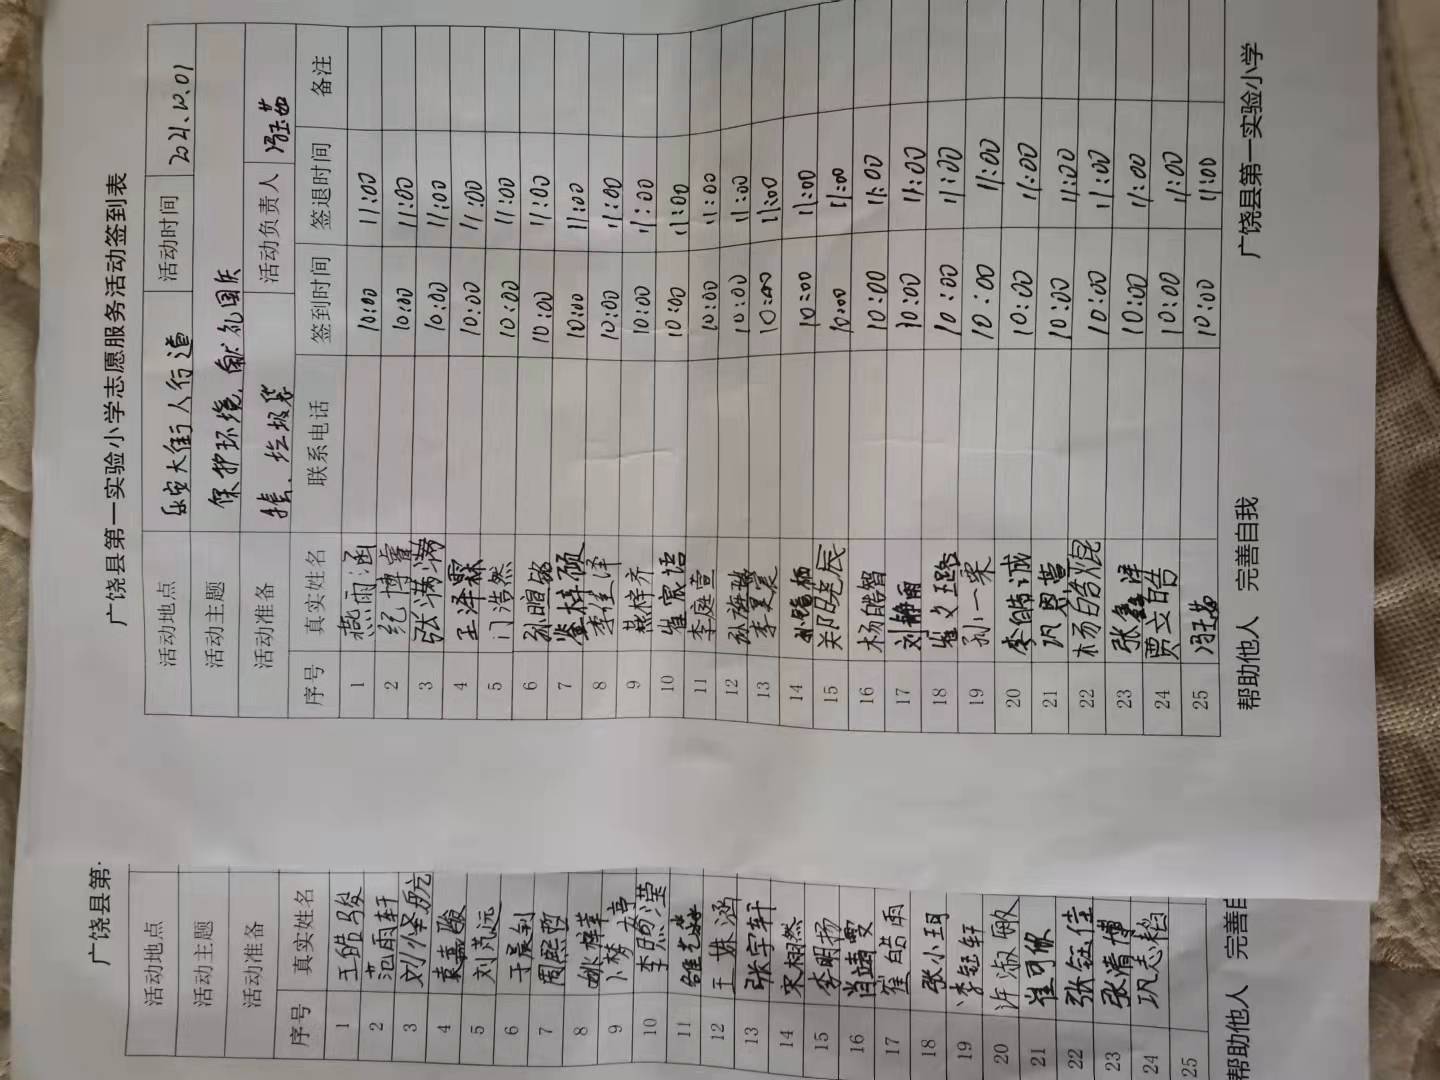 广饶县第一实验小学志愿服务活动签到表
活动地点 乐安大街人行道 活动时间 2021.10.01
活动主题 保护环境,献礼国庆
活动准备 手套、垃圾袋 活动负责人
序号 真实姓名 联系电话 签到时间 签退时间 备注
1 燕雨涵 10:00 11:00
2 纪博睿 10:00 11:00
3 张满满 10:00 11:00
4 王泽霖 10:00 11:00
5 门浩然 10:00 11:00
6 10:00 11:00
7 10:00 11:00
8 李佳泽 10:00 11:00
9 燕梓齐 10:00 11:00
10 崔宸梧 10:00 11:00
11 李庭萱 10:00 11:00
12 10:00 11:00
13 李昊宸 10:00 11:00
14 10:00 11:00
15 关阳晓辰 10:00 11:00
16 杨皓智 10:00 11:00
17 刘静雨 10:00 11:00
18 崔文璐 10:00 11:00
19 孙一栗 10:00 11:00
20 李皓诚 10:00 11:00
21 巩恩萱 10:00 11:00
22 杨皓焜 10:00 11:00
23 张鑫洋 10:00 11:00
24 贾文皓 10:00 11:00
25 10:00 11:00
帮助他人 完善自我 广饶县第一实验小学
广饶县第一
活动地点
活动主题
活动准备
序号 真实姓名
1 王皓骏
2 范雨轩
3 刘怿航
4 袁嘉骏
5 刘芃远
6 于晨钊
7 周熙哲
8 姚梓菲
9 卜梦婷
10 李煦滢
11
12 王姝涵
13 张宇轩
14 宋栩然
15 李明扬
16 肖靖雯
17 崔皓雨
18 张小玥
19 李钰轩
20 许淑敏
21 崔可欣
22 张钰佳
23 张清博
24 巩志韬
25
帮助他人 完善自